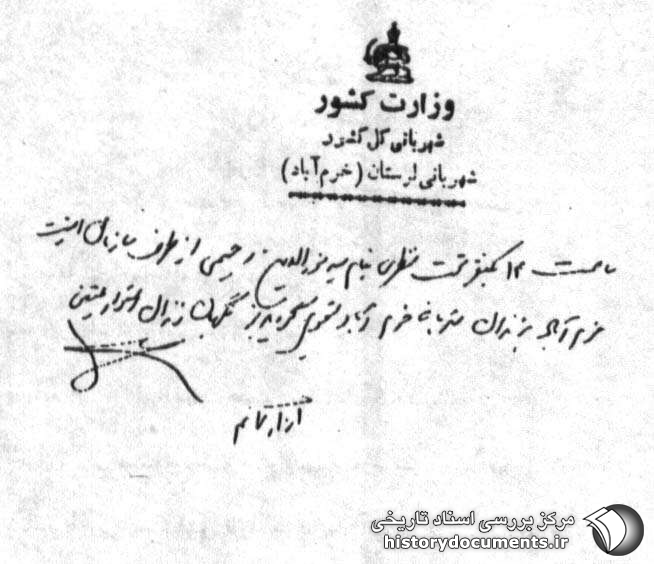 وزارت کشور
شهربانی کل کشور
شهربانی لرستان (خرم آباد)
ساعت ۱۴ یکنفر تحت نظری بنام سید نورالدین رحیمی از طرف سازمان امنیت
خرم آباد به زندان شهربانی خرم آباد تحویل گردید نگهبان زندان استوار
مرکز بررسی اسناد تاریخی
historydocuments.ir